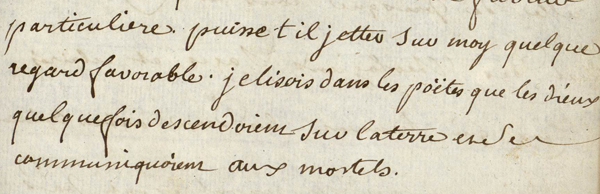 particuliere. puisse t'il jetter sur moy quelque
regard favorable. je lisois dans les poëtes que les dieux
quelquefois descendoient sur la terre et se
communiquoient aux mortels.